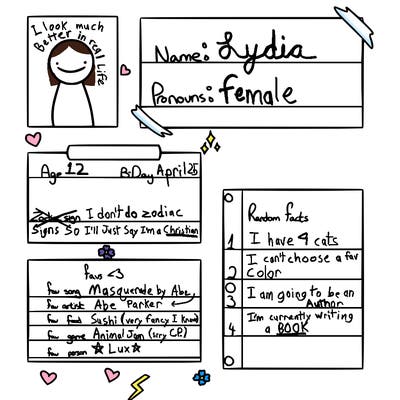 I look much
Better in real Life
Name: Lydia
Pronouns: female
Age 12 B-Day April 25
Zodiac sign I don't do zodiac
Signs So I'll Just Say I'm a Christian
favs <3
fav song Masquerade by Abe,
fav artist Abe Parker
fav food Sushi (very fancy I know)
fav game Animal Jam (sry C.P.)
fav person ★ Lux ★
Random facts
1 I have 4 cats
2 I can't choose a fav
color
3 I am going to be an
Author
4 I'm currently writing
a BOOK